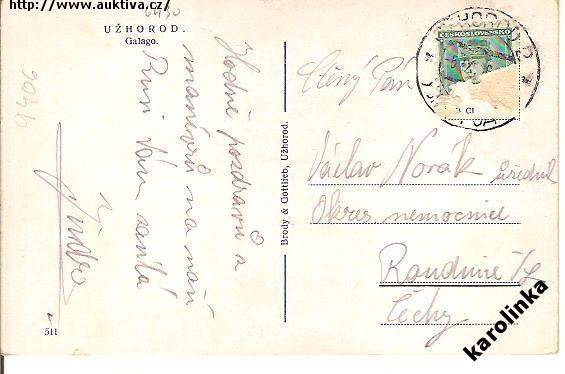 http://www.auktiva.cz/
UŽHOROD.
Galago.
Hodně pozdravů z
manévrů na naší
Rusi Vám zasílá
Jindra
511
Brody & Gottlieb, Užhorod.
ČESKOSLOVENSKO
Ctěný Pán
Václav Novák úředník
Okres nemocnice
Roudnice n/L
Čechy
karolinka